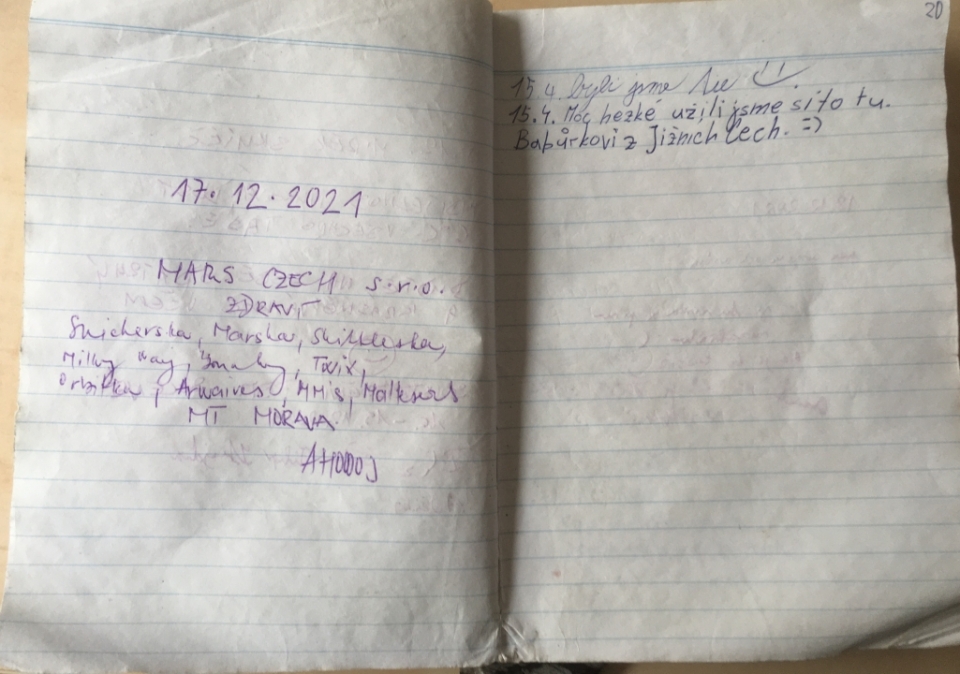 17. 12. 2021
MARS CZECH s.r.o.
ZDRAVÍ
Snickerska, Marska, Skittleska,
Milky Way, , Twix,
Orbitka, Airwaives, MMis, Maltesers
MT MORAVA
AHOOOJ
20
15.4. byli jsme
15.4. Moc hezké užili jsme si to tu.
Babůrkovi z Jižních Čech. =)